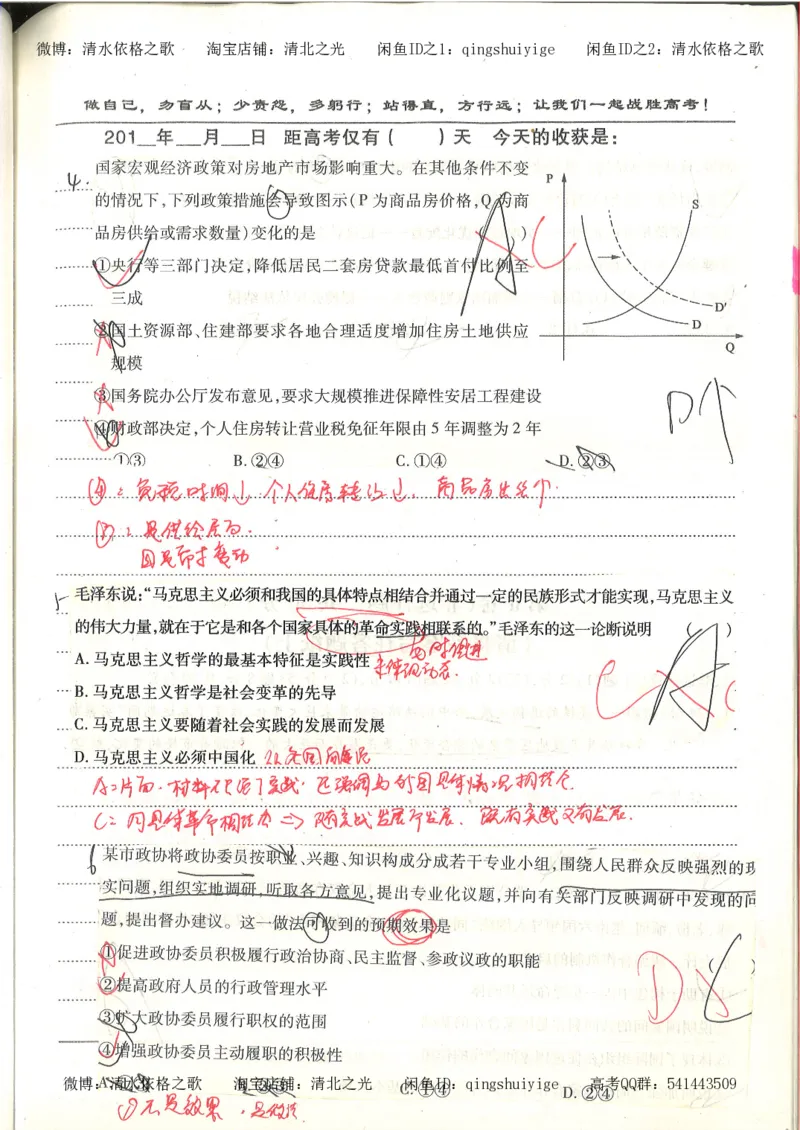 微博：清水依格之歌 淘宝店铺：清北之光 闲鱼ID之1：qingshuiyige 闲鱼ID之2：清水依格之歌
做自己，勿盲从；少责怨，多躬行；站得直，方行远；让我们一起战胜高考！
201__年___月___日 距高考仅有（ ）天 今天的收获是：
4.
国家宏观经济政策对房地产市场影响重大。在其他条件不变
的情况下，下列政策措施会导致图示（P为商品房价格，Q为商
品房供给或需求数量）变化的是 （ ）
A C
①央行等三部门决定，降低居民二套房贷款最低首付比例至
三成
②国土资源部、住建部要求各地合理适度增加住房土地供应
规模
③国务院办公厅发布意见，要求大规模推进保障性安居工程建设
④财政部决定，个人住房转让营业税免征年限由5年调整为2年
①③ B. ②④ C. ①④ D. ②③
P
S
D'
D
Q
D个
④：免税时间↓
个人住房转让
商品房
是供给
5
毛泽东说：“马克思主义必须和我国的具体特点相结合并通过一定的民族形式才能实现，马克思主义
的伟大力量，就在于它是和各个国家具体的革命实践相联系的。”毛泽东的这一论断说明 （ ）
与时俱进
A. 马克思主义哲学的最基本特征是实践性
B. 马克思主义哲学是社会变革的先导
C. 马克思主义要随着社会实践的发展而发展
D. 马克思主义必须中国化
C A
A：片面．材料不仅
C：
6
某市政协将政协委员按职业、兴趣、知识构成分成若干专业小组，围绕人民群众反映强烈的现
实问题，组织实地调研，听取各方意见，提出专业化议题，并向有关部门反映调研中发现的问
题，提出督办建议。这一做法可收到的预期效果是
①促进政协委员积极履行政治协商、民主监督、参政议政的职能
②提高政府人员的行政管理水平
③扩大政协委员履行职权的范围
④增强政协委员主动履职的积极性
D
C. ①④ D. ②④
微博：清水依格之歌 淘宝店铺：清北之光 闲鱼ID：qingshuiyige 高考QQ群：541443509
①不是效果，是做法